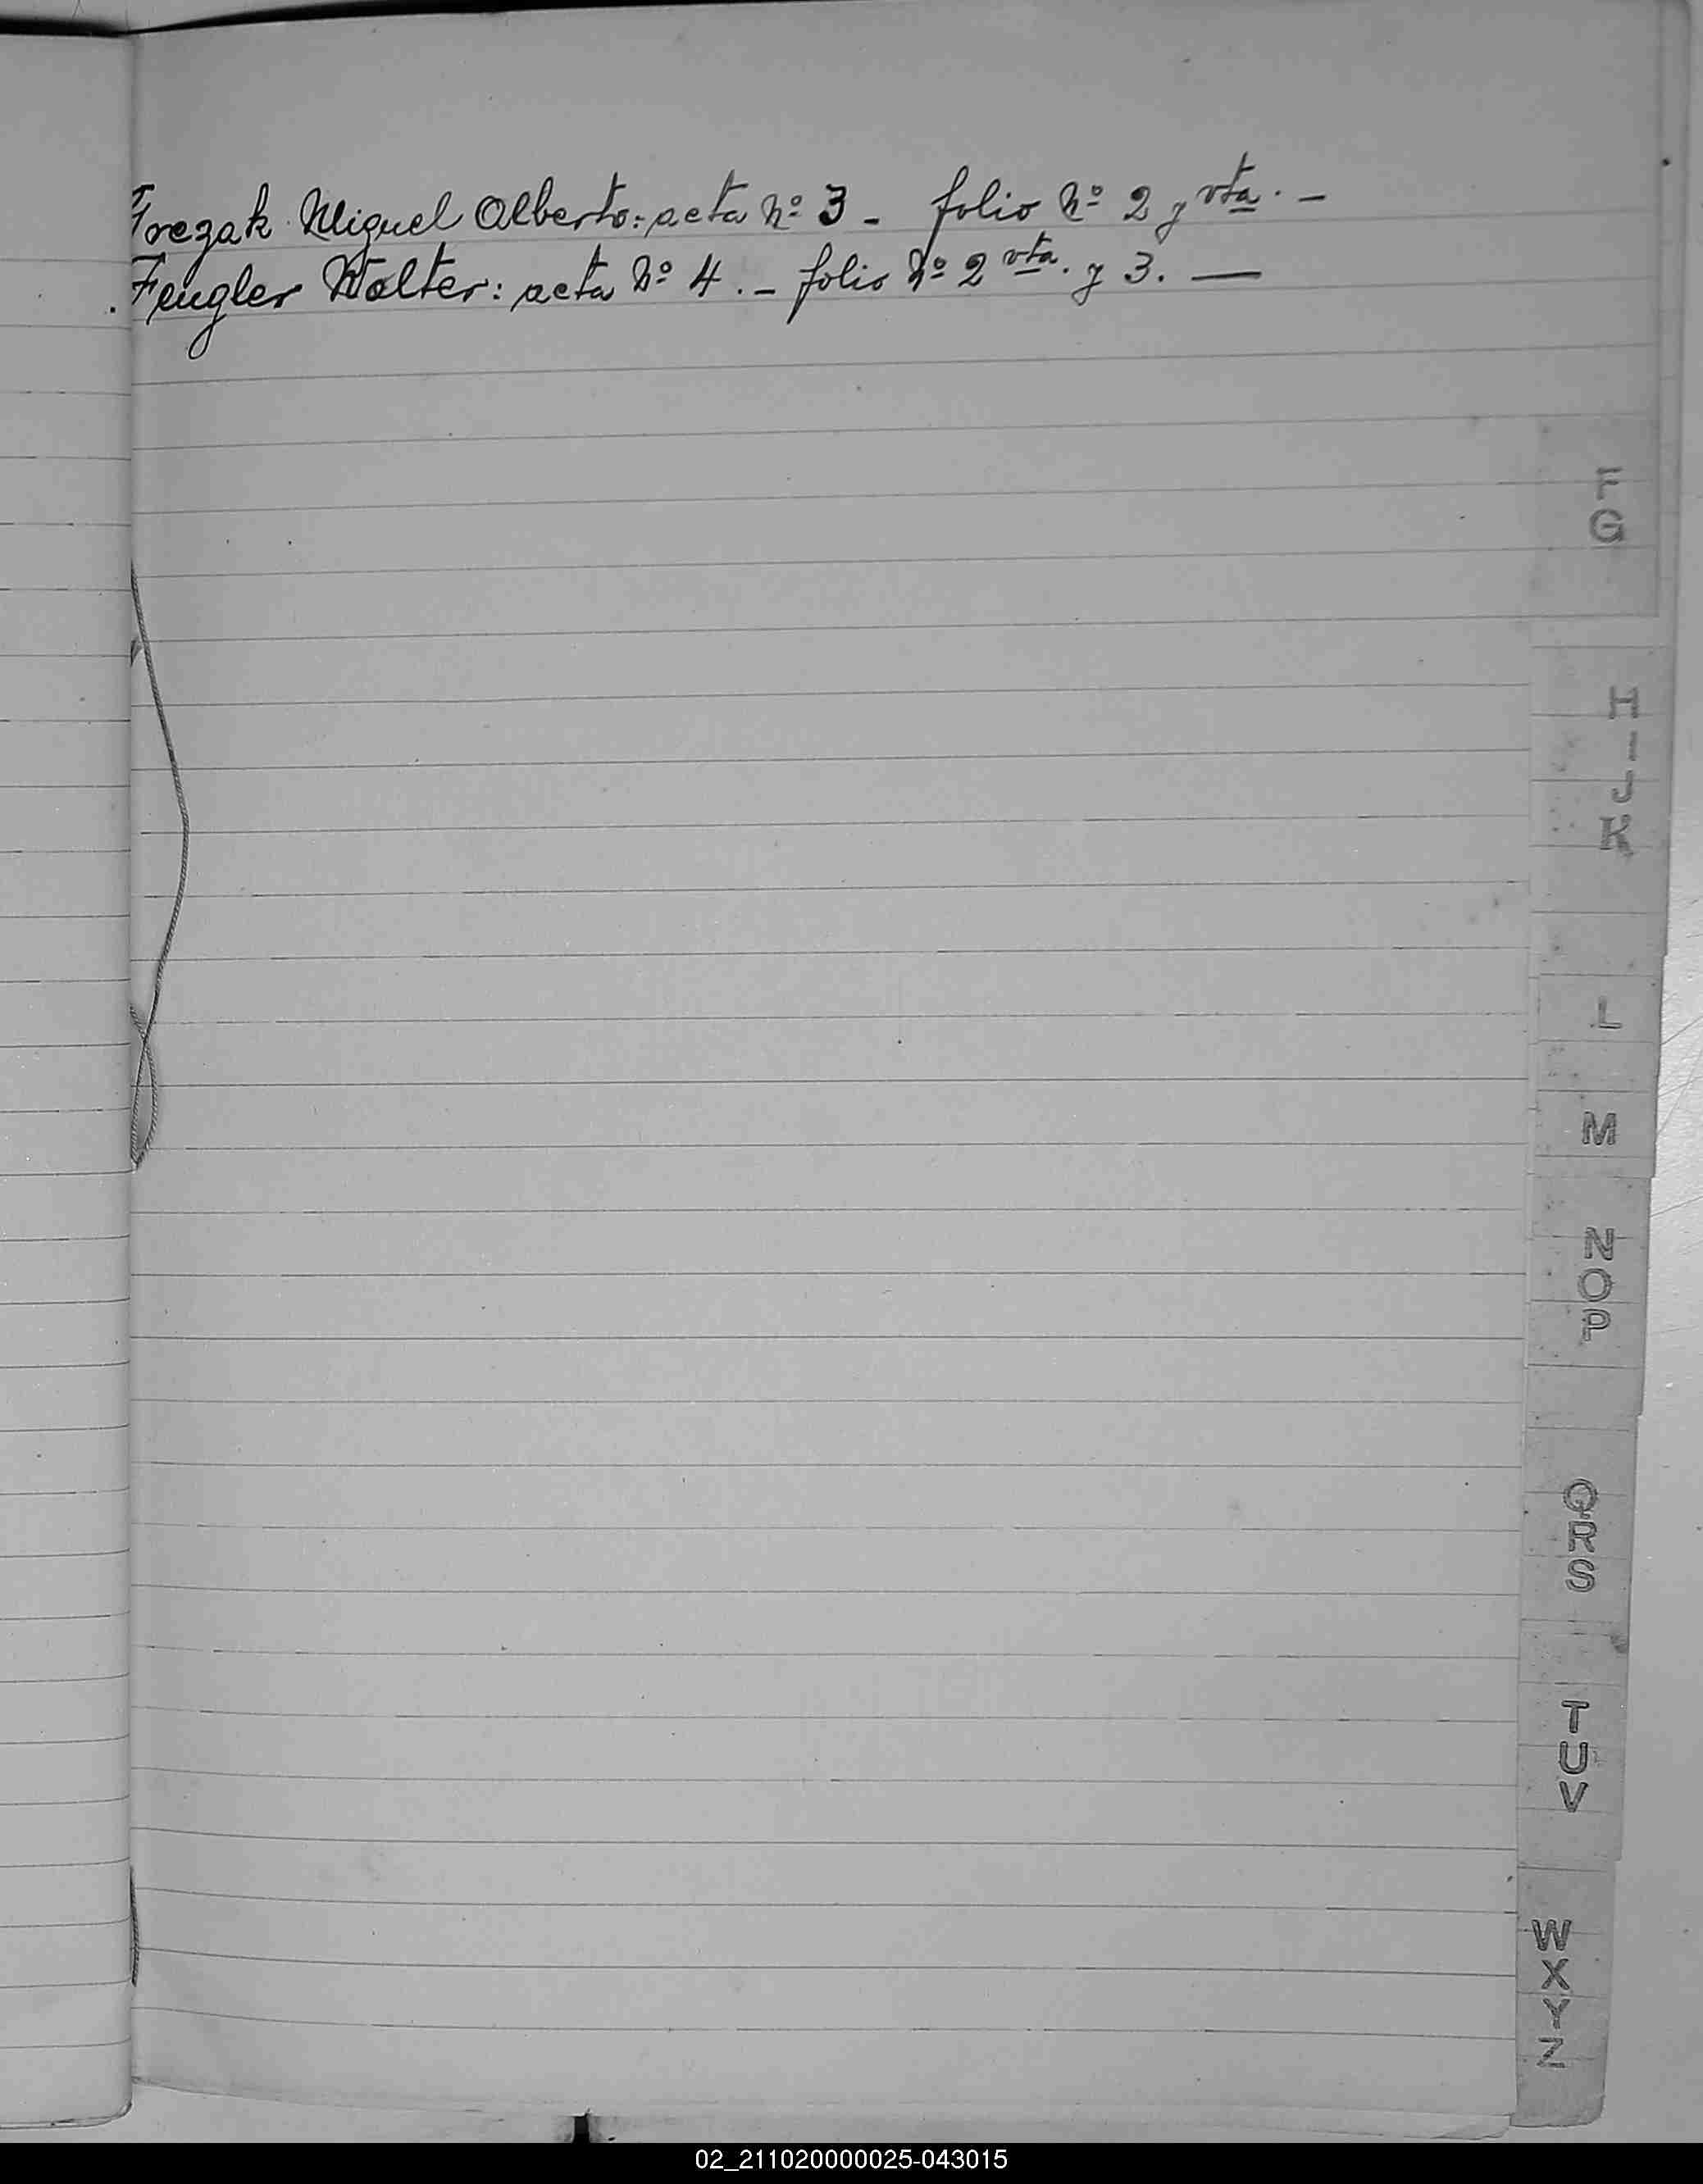 Frezak Miguel Alberto: acta Nº 3 - folio Nº 2 y vta. -
Feugler Walter: acta Nº 4. - folio Nº 2 vta. y 3. —
F
G
H
I
J
K
L
M
N
O
P
Q
R
S
T
U
V
W
X
Y
Z
02_211020000025-043015